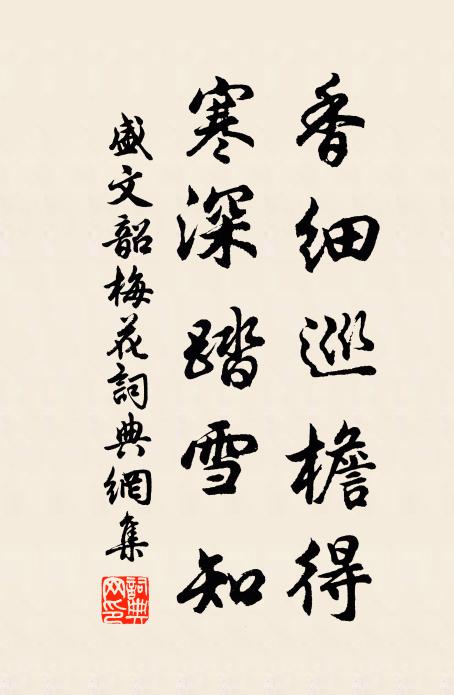 香細巡檐得
寒深踏雪知
盛文韶梅花詞典網集
詞典網印